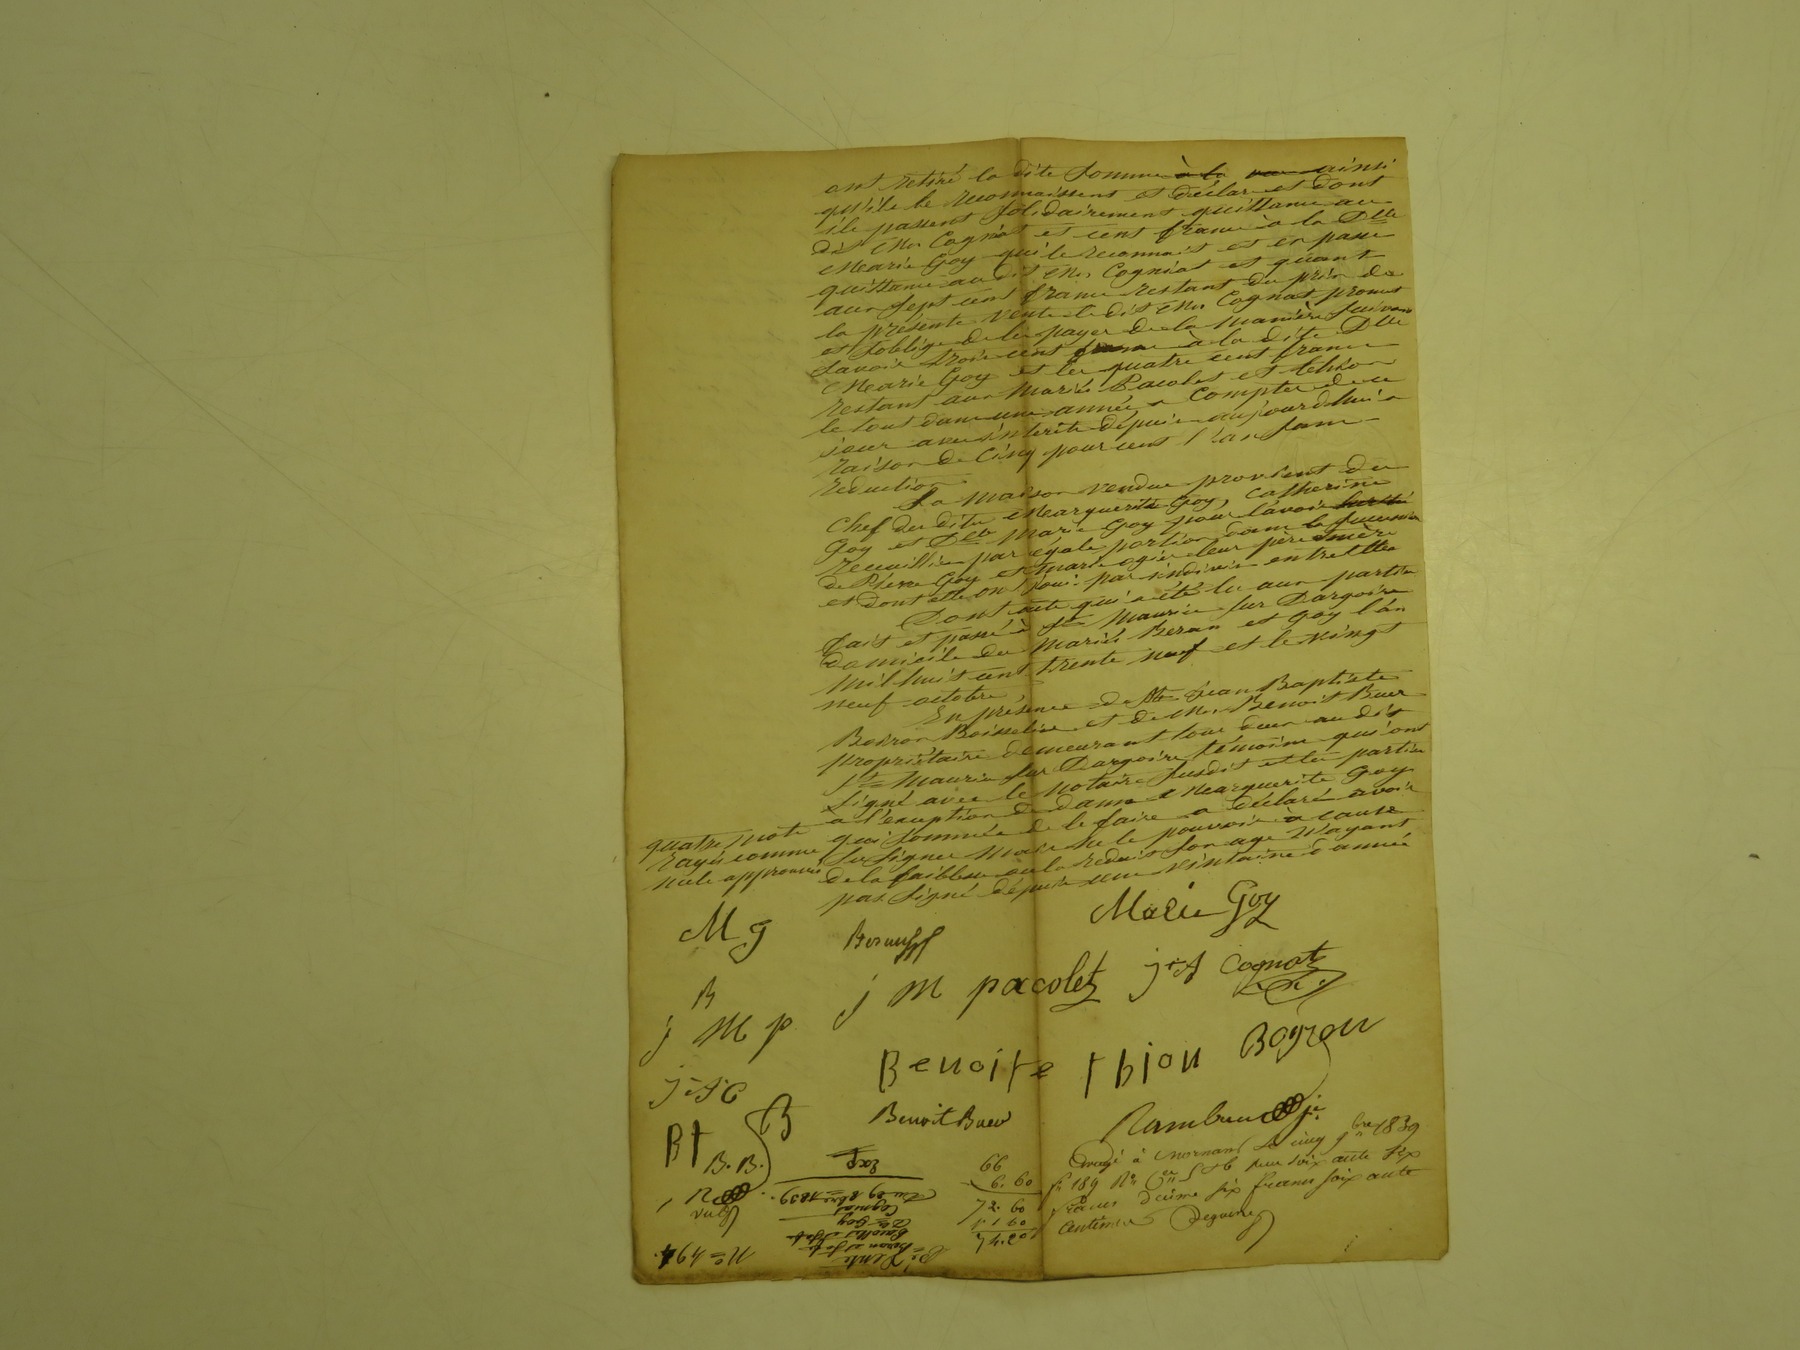 ont retiré la dite somme à la vue ainsi
qu'ils le reconnaissent et déclar et dont
ils passent solidairement quittance au
dit Mr Cognat et cent francs à la Dlle
Marie Goy qui le reconnait et en passe
quittance au dit Mr Cogniat et quant
aux sept cent francs restant du prix de
la présente vente le dit Mr Cognat promet
et soblige de les payer de la manière suivante
savoir trois cent francs à la dite Dlle
Marie Goy et les quatre cent francs
restant aux mariés Pacolet et thion
le tout dans une année a compter de ce
jour avec intérêts depuis aujourdhui a
raison de cinq pour cent l'an sans
reduction
La maison vendue provient du
chef des dites Marguerite Goy, Catherine
Goy et Dlle Marie Goy pour l'avoir
recueillie par égale portion dans la succession
de Pierre Goy et leur père mère
et dont elle ont joui par indivis entrelles
Dont acte qui a été lu aux parties
fait et passé à St Maurice sur Dargoire
domicile des mariés Beran et Goy l'an
mil huit cent trente neuf et le vingt
neuf octobre
En présence de Mr Jean Baptiste
Boiron Boisselier et de Mr Benoit Buer
propriétaire demeurant tous deux au dit
St Maurice sur Dargoire témoins qui ont
signé avec le notaire susdit et les parties
a l'exception de dame Marguerite Goy
qui sommée de le faire a déclaré avoir
su signer mais ne le pouvoir à cause
de la faiblesse ou la reduit son age n'ayant
pas signé depuis une vintaine d'année
quatre mots
rayés comme
nuls approuvés
M g
Marie Goy
B
j M p
j M pacolet
jn A Cognat
jn A C
Benoite thion
Boyron
Bt
B
Benoit Buer
Rambeau je
B. B.
66
6. 60
72. 60
1. 60
74. 20
Enregé à Mornant le cinq 9bre 1839
fo 189 Ro Cse 5 & 6 reçu soixante six
francs décime six francs soixante
centimes Deguine
No 494
Vente
Beran et Goy
Pacolet et Goy
Dlle Goy
Cogniat
Du 29 8bre 1839
Exp